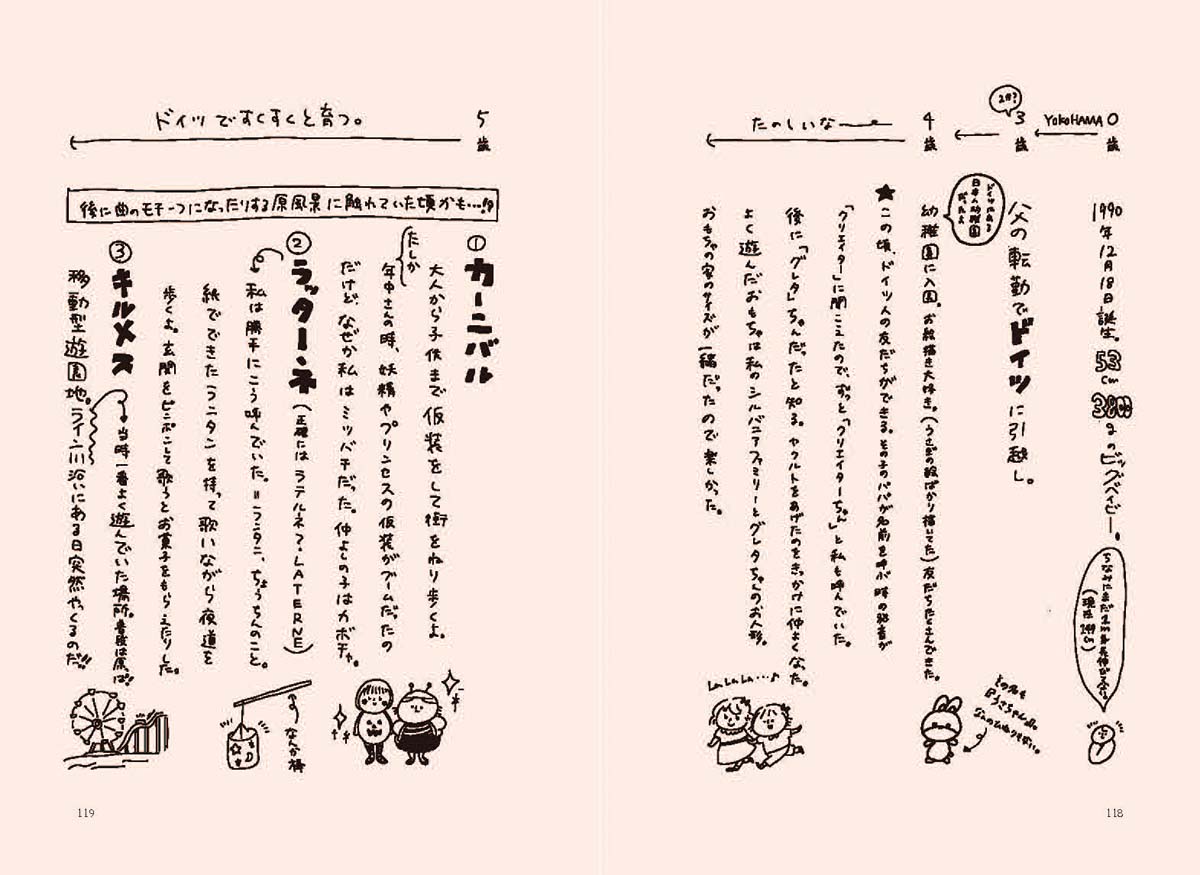 0歳
YOKOHAMA
3歳
4歳
たのしいなー
1990年12月18日誕生。53cm 3800gのビッグベイビー。
父の転勤でドイツに引越し。
ドイツにある日本人幼稚園だったよ
幼稚園に入園。お絵描き大好き。(うさぎの絵ばかり描いてた)友だちたくさんできた。
★この頃、ドイツ人の友だちができる。その子のパパが名前を呼ぶ時の発音が
「クリエイター」に聞こえたので、ずっと「クリエイターちゃん」と私も呼んでいた。
後に「グレタ」ちゃんだったと知る。ヤクルトをあげたのをきっかけに仲よくなった。
よく遊んだおもちゃは私のシルバニアファミリーとグレタちゃんのお人形。
おもちゃの家のサイズが一緒だったので楽しかった。
その名も
なんのひねりもない。
LA LA LA...♪
118
5歳
ドイツですくすくと育つ。
後に曲のモチーフになったりする原風景に触れていた頃かも…!?
① カーニバル
大人から子供まで仮装をして街をねり歩くよ。
たしか
年中さんの時、妖精やプリンセスの仮装がブームだったの
だけど、なぜか私はミツバチだった。仲よしの子はカボチャ。
② ラッターネ(正確にはラテルネ?・LATERNE)
私は勝手にこう呼んでいた。=ランタン、ちょうちんのこと。
紙でできたランタンを持って歌いながら夜道を
歩くよ。玄関をピンポンして歌うとお菓子をもらえたりした。
なんか棒
③ キルメス
当時一番よく遊んでいた場所。普段は原っぱ!
移動型遊園地。ライン川沿いにある日突然やってくるのだ!!
119